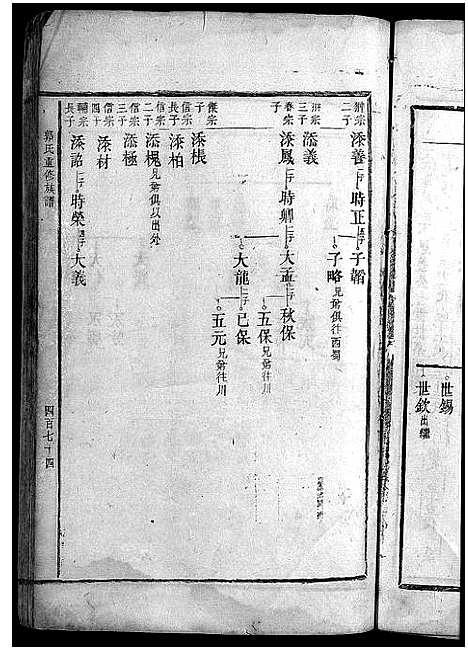 世錫
世欽出繼
二子
添善二子時正二子子韜
子略兄弟俱往西蜀
三子
添義
春宗
子
添鳳三子時卿二子大孟二子秋保
五保兄弟往川
大龍二子已保
五元兄弟往川
子
添桭
信宗
長子
添柏
信宗
二子
添槐兄弟俱以出外
信宗
三子
添極
信宗
四子
添材
輔宗
長子
添韶一子時榮一子大義
郭氏重修族譜
四百七十四